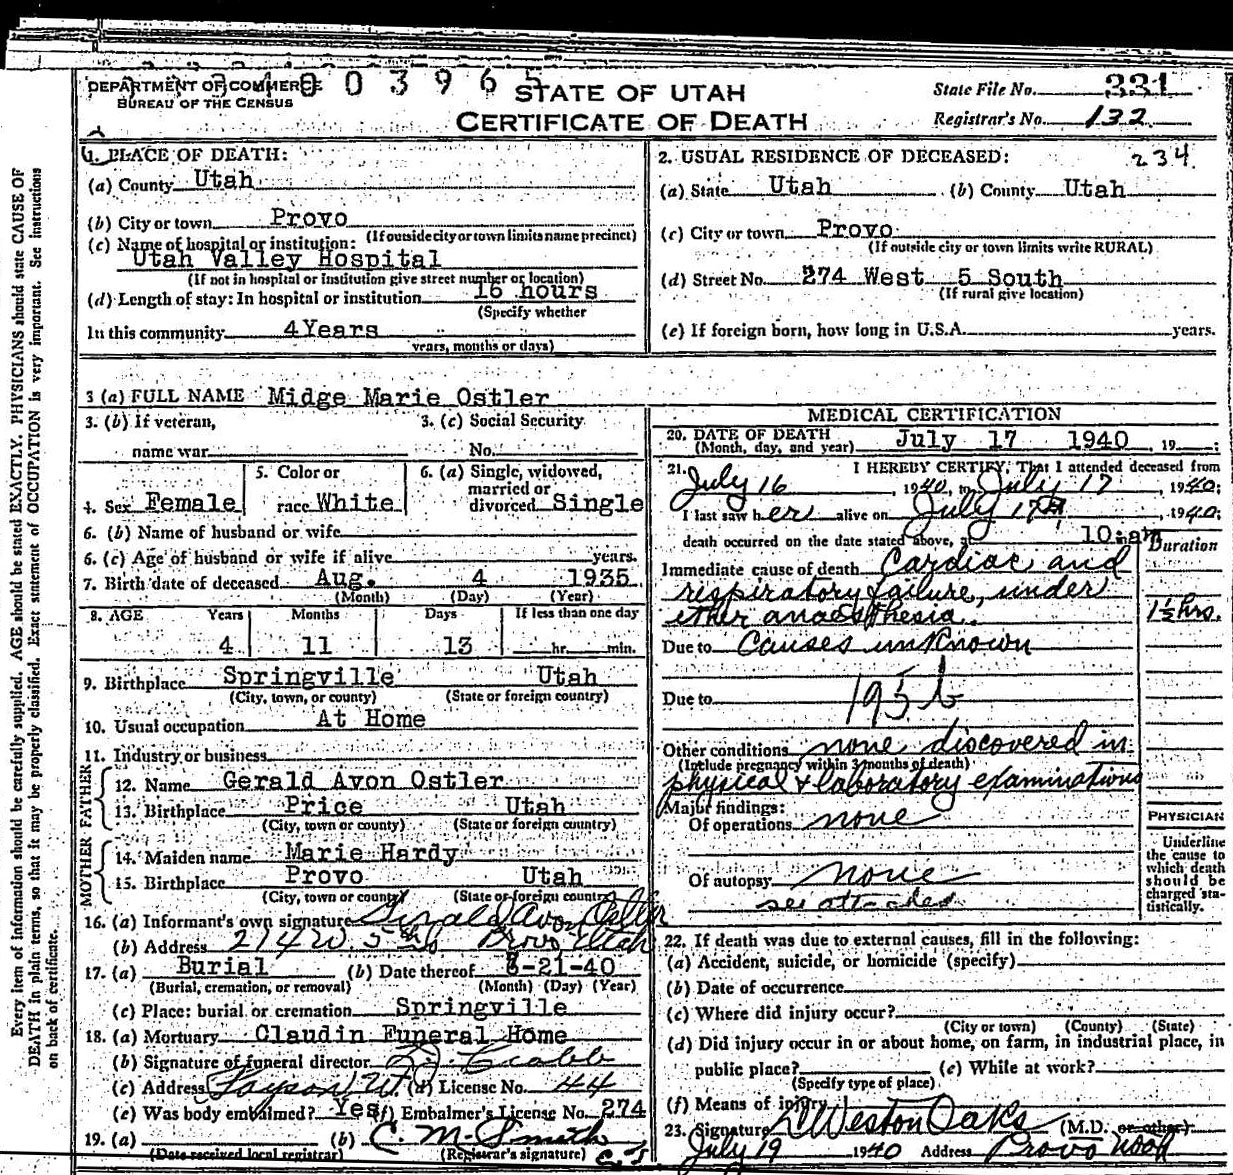 DEPARTMENT OF COMMERCE
BUREAU OF THE CENSUS
0 0 3 9 6 5
STATE OF UTAH
CERTIFICATE OF DEATH
State File No. 331
Registrar's No. 132
234
Every item of information should be carefully supplied. AGE should be stated EXACTLY. PHYSICIANS should state CAUSE OF
DEATH in plain terms, so that it may be properly classified. Exact statement of OCCUPATION is very important. See instructions
on back of certificate.
1. PLACE OF DEATH:
(a) County Utah
(b) City or town Provo
(If outside city or town limits name precinct)
(c) Name of hospital or institution:
Utah Valley Hospital
(If not in hospital or institution give street number or location)
(d) Length of stay: In hospital or institution 16 hours
(Specify whether
In this community 4 Years
years, months or days)
2. USUAL RESIDENCE OF DECEASED:
(a) State Utah (b) County Utah
(c) City or town Provo
(If outside city or town limits write RURAL)
(d) Street No. 274 West 5 South
(If rural give location)
(e) If foreign born, how long in U.S.A. years.
3 (a) FULL NAME Midge Marie Ostler
3. (b) If veteran,
name war
3. (c) Social Security
No.
4. Sex Female
5. Color or
race White
6. (a) Single, widowed,
married or
divorced Single
6. (b) Name of husband or wife
6. (c) Age of husband or wife if alive years.
7. Birth date of deceased Aug. 4 1935
(Month) (Day) (Year)
8. AGE Years Months Days If less than one day
4 11 13 hr. min.
9. Birthplace Springville Utah
(City, town, or county) (State or foreign country)
10. Usual occupation At Home
11. Industry or business
FATHER
12. Name Gerald Avon Ostler
13. Birthplace Price Utah
(City, town or county) (State or foreign country)
MOTHER
14. Maiden name Marie Hardy
15. Birthplace Provo Utah
(City, town or county) (State or foreign country)
16. (a) Informant's own signature Gerald Avon Ostler
(b) Address 274 W. 5th So Provo Utah
17. (a) Burial (b) Date thereof -21-40
(Burial, cremation, or removal) (Month) (Day) (Year)
(c) Place: burial or cremation Springville
18. (a) Mortuary Claudin Funeral Home
(b) Signature of funeral director Crabb
(c) Address Payson Ut. (d) License No. 44
(e) Was body embalmed? Yes (f) Embalmer's License No. 274
19. (a) (b) C. M. Smith
(Date received local registrar) (Registrar's signature)
MEDICAL CERTIFICATION
20. DATE OF DEATH
(Month, day, and year) July 17 1940, 19 ;
21. I HEREBY CERTIFY, That I attended deceased from
July 16, 1940, to July 17, 1940;
I last saw her alive on July 17, 1940;
death occurred on the date stated above, at 10:am
Duration
Immediate cause of death Cardiac and
respiratory failure, under
ether anaesthesia. 1½ hrs.
Due to Causes unknown
Due to 195 b
Other conditions none discovered in
(Include pregnancy within 3 months of death)
physical & laboratory examinations
Major findings:
Of operations none
Of autopsy none
see attached
PHYSICIAN
Underline
the cause to
which death
should be
charged sta-
tistically.
22. If death was due to external causes, fill in the following:
(a) Accident, suicide, or homicide (specify)
(b) Date of occurrence
(c) Where did injury occur?
(City or town) (County) (State)
(d) Did injury occur in or about home, on farm, in industrial place, in
public place? (e) While at work?
(Specify type of place)
(f) Means of injury
23. Signature L Weston Oaks (M.D. or other)
July 19 1940 Address Provo Utah